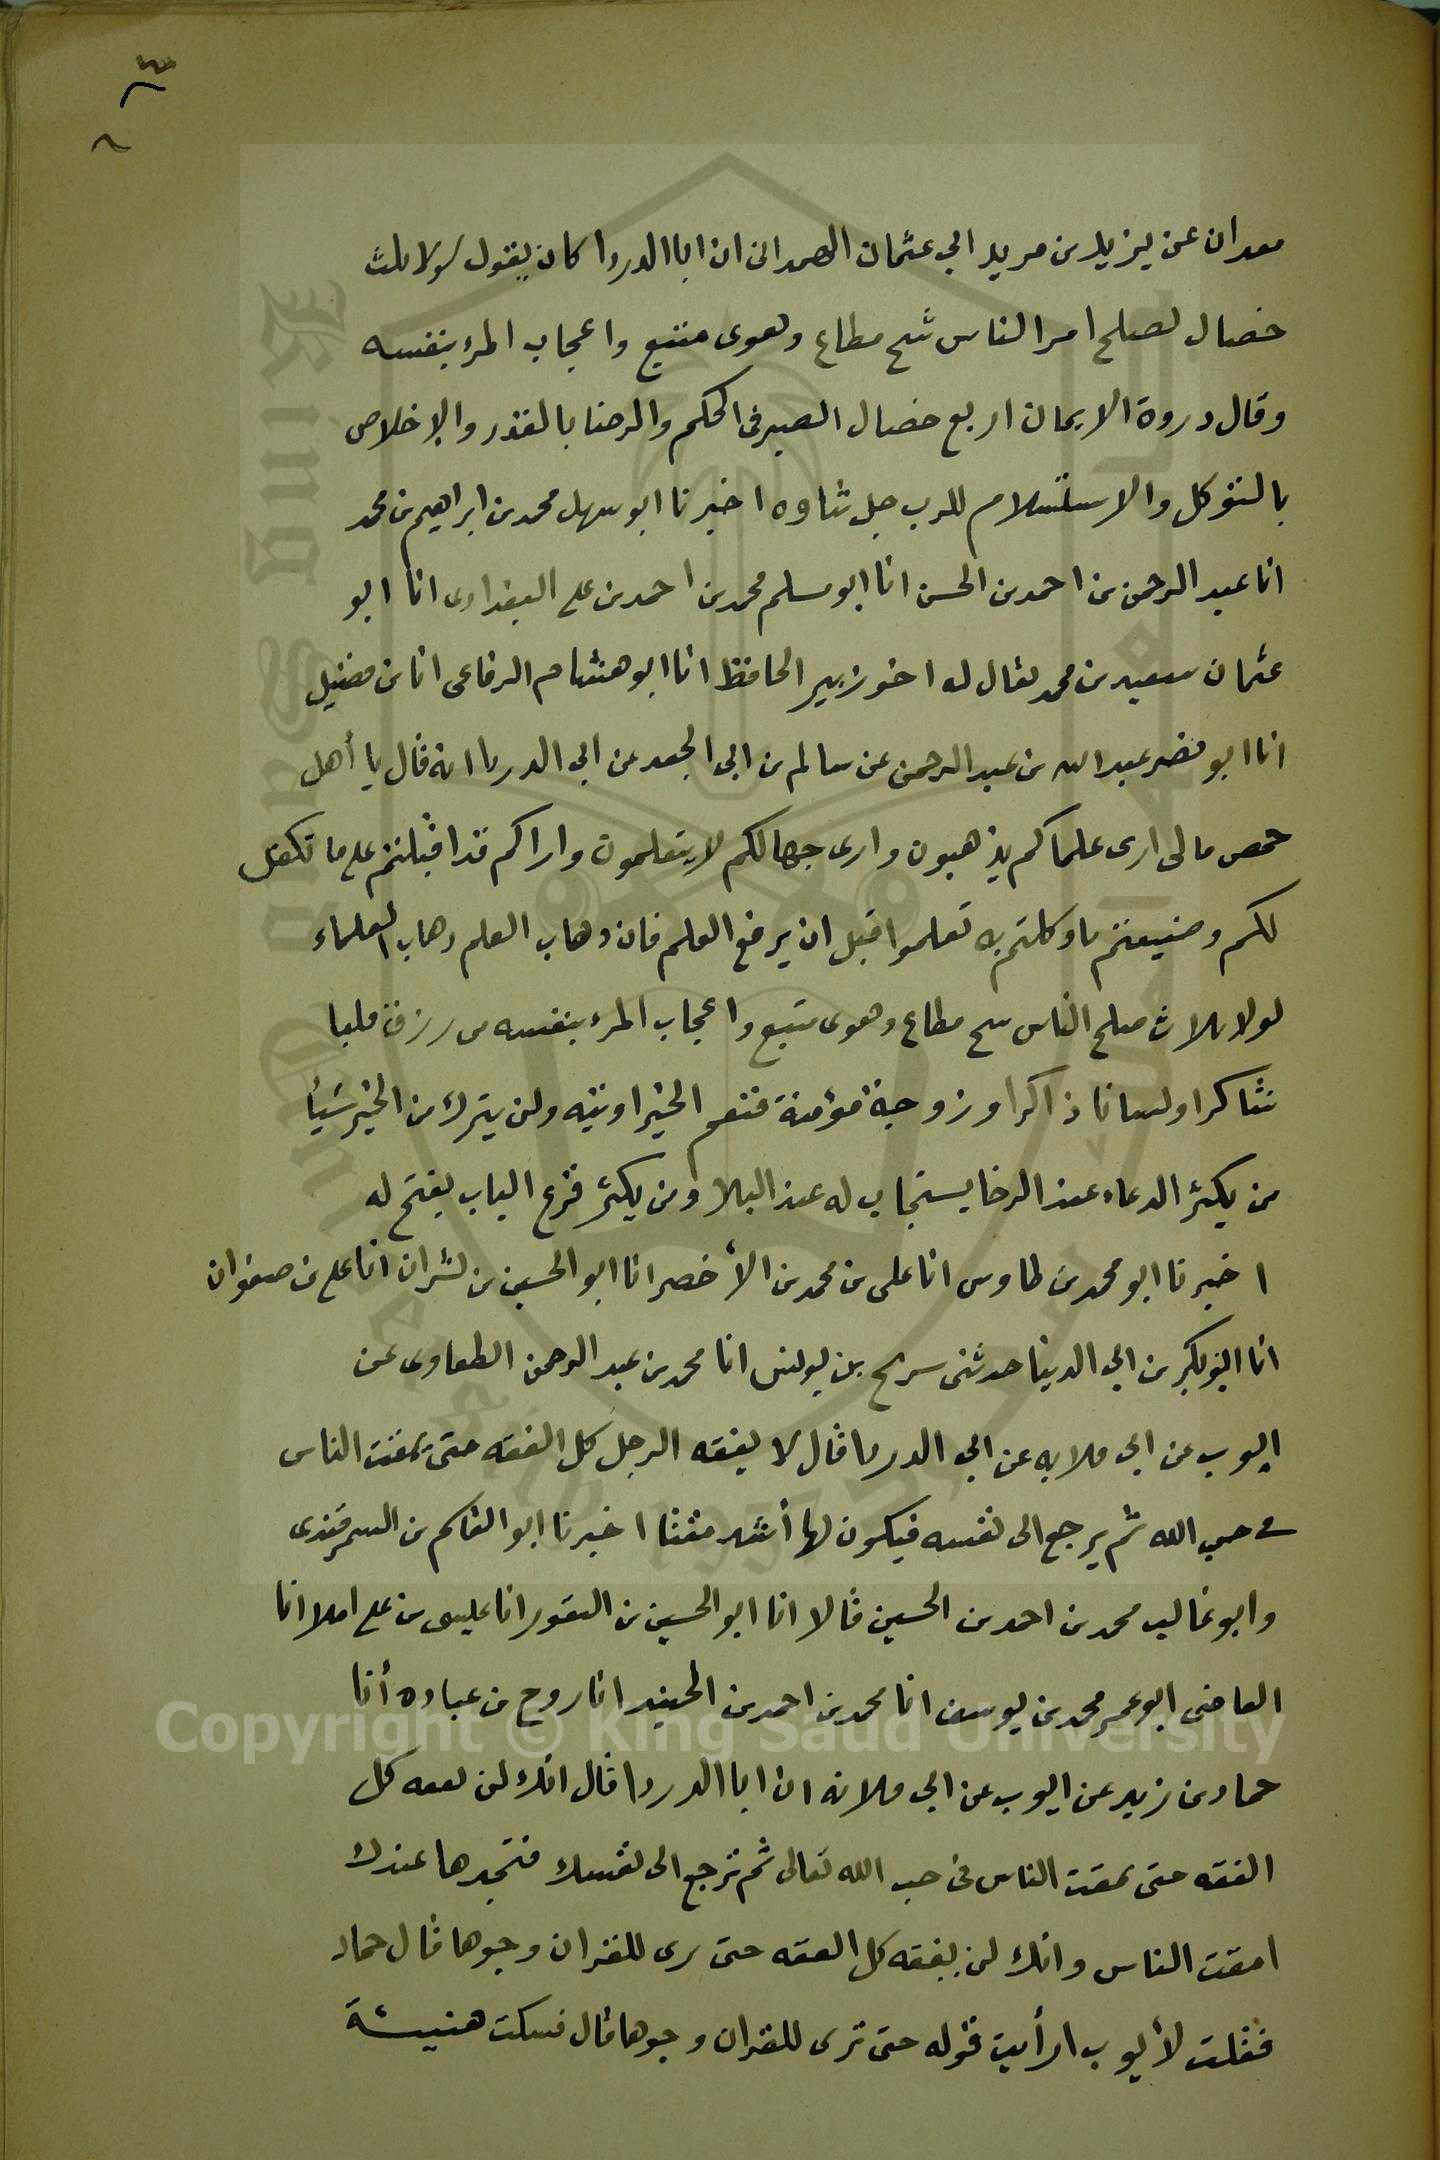 معدان عن يزيد بن مريد ابي عثمان الهمداني ان ابا الدردا كان يقول لولا ثلث
خصال لصلح امر الناس شح مطاع وهوى متبع واعجاب المرء بنفسه
وقال دروة الايمان اربع خصال الصبر في الحكم والرضا بالقدر والاخلاص
بالتوكل والاستسلام للرب جل ثناوه اخبرنا ابو سهل محمد بن ابراهيم بن محمد
انا عبد الرحمن بن احمد بن الحسن انا ابو مسلم محمد بن احمد بن علي البغدادى انا ابو
عثمان سعيد بن محمد يقال له اخو زبير الحافظ انا ابو هشام الرفاعى انا بن فضيل
انا ابو نصر عبد الله بن عبد الرحمن عن سالم بن ابى الجعد عن ابي الدردا انه قال يا أهل
حمص مالى ارى علماكم يذهبون وارى جهالكم لا يتعلمون واراكم قد اقبلتم على ما تكفل
لكم وضيعتم ما وكلتم به تعلموا قبل ان يرفع العلم فان دهاب العلم دهاب العلماء
لولا ثلاث صلح الناس شح مطاع وهوى متبع واعجاب المرء بنفسه من رزق قلبا
شاكرا ولسانا ذاكرا وزوجة مؤمنة فنعم الخير اوتيه ولن يترك من الخير شيأ
من يكثر الدعاء عند الرخا يستجاب له عند البلا ومن يكثر قرع الباب يفتح له
اخبرنا ابو محمد بن طاوس انا على بن محمد بن الأخضر انا ابو الحسين بن بشران انا على بن صفوان
انا ابو بكر بن ابي الدينا حدثنى سريج بن يونس انا محمد بن عبد الرحمن الطفاوى عن
ايوب عن ابي قلابه عن ابي الدردا قال لا يفقه الرجل كل الفقه حتى يمقت الناس
في حب الله ثم يرجع الى نفسه فيكون لها أشد مقتا اخبرنا ابو القاسم بن السمرقندى
وابو غالب محمد بن احمد بن الحسين قالا انا ابو الحسين بن النقور انا عيسى بن على املا انا
القاضى ابو عمر محمد بن يوسف انا محمد بن احمد بن الجنيد انا روح بن عباده أنا
حماد بن زيد عن ايوب عن ابي قلابه ان ابا الدردا قال انك لن تفقه كل
الفقه حتى تمقت الناس في جب الله تعالى ثم ترجع الى نفسك فتجدها عندك
امقت الناس وانك لن تفقه كل الفقه حتى ترى للقران وجوها قال حماد
فقلت لأيوب ارأيت قوله حتى ترى للقران وجوها قال فسكت هنيئة
Copyright © King Saud University